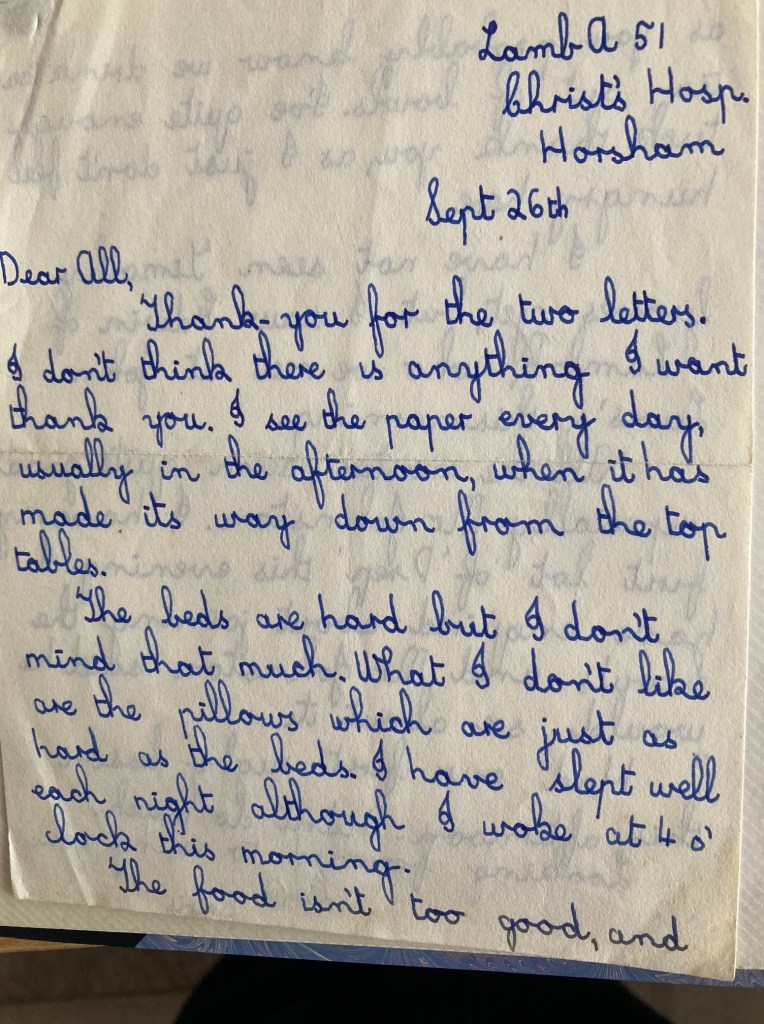 Lamb A 51
Christ's Hosp.
Horsham
Sept 26th
Dear All,
Thank-you for the two letters.
I don't think there is anything I want
thank you. I see the paper every day,
usually in the afternoon, when it has
made its way down from the top
tables.
The beds are hard but I don't
mind that much. What I don't like
are the pillows which are just as
hard as the beds. I have slept well
each night although I woke at 4 o'
clock this morning.
The food isn't too good, and